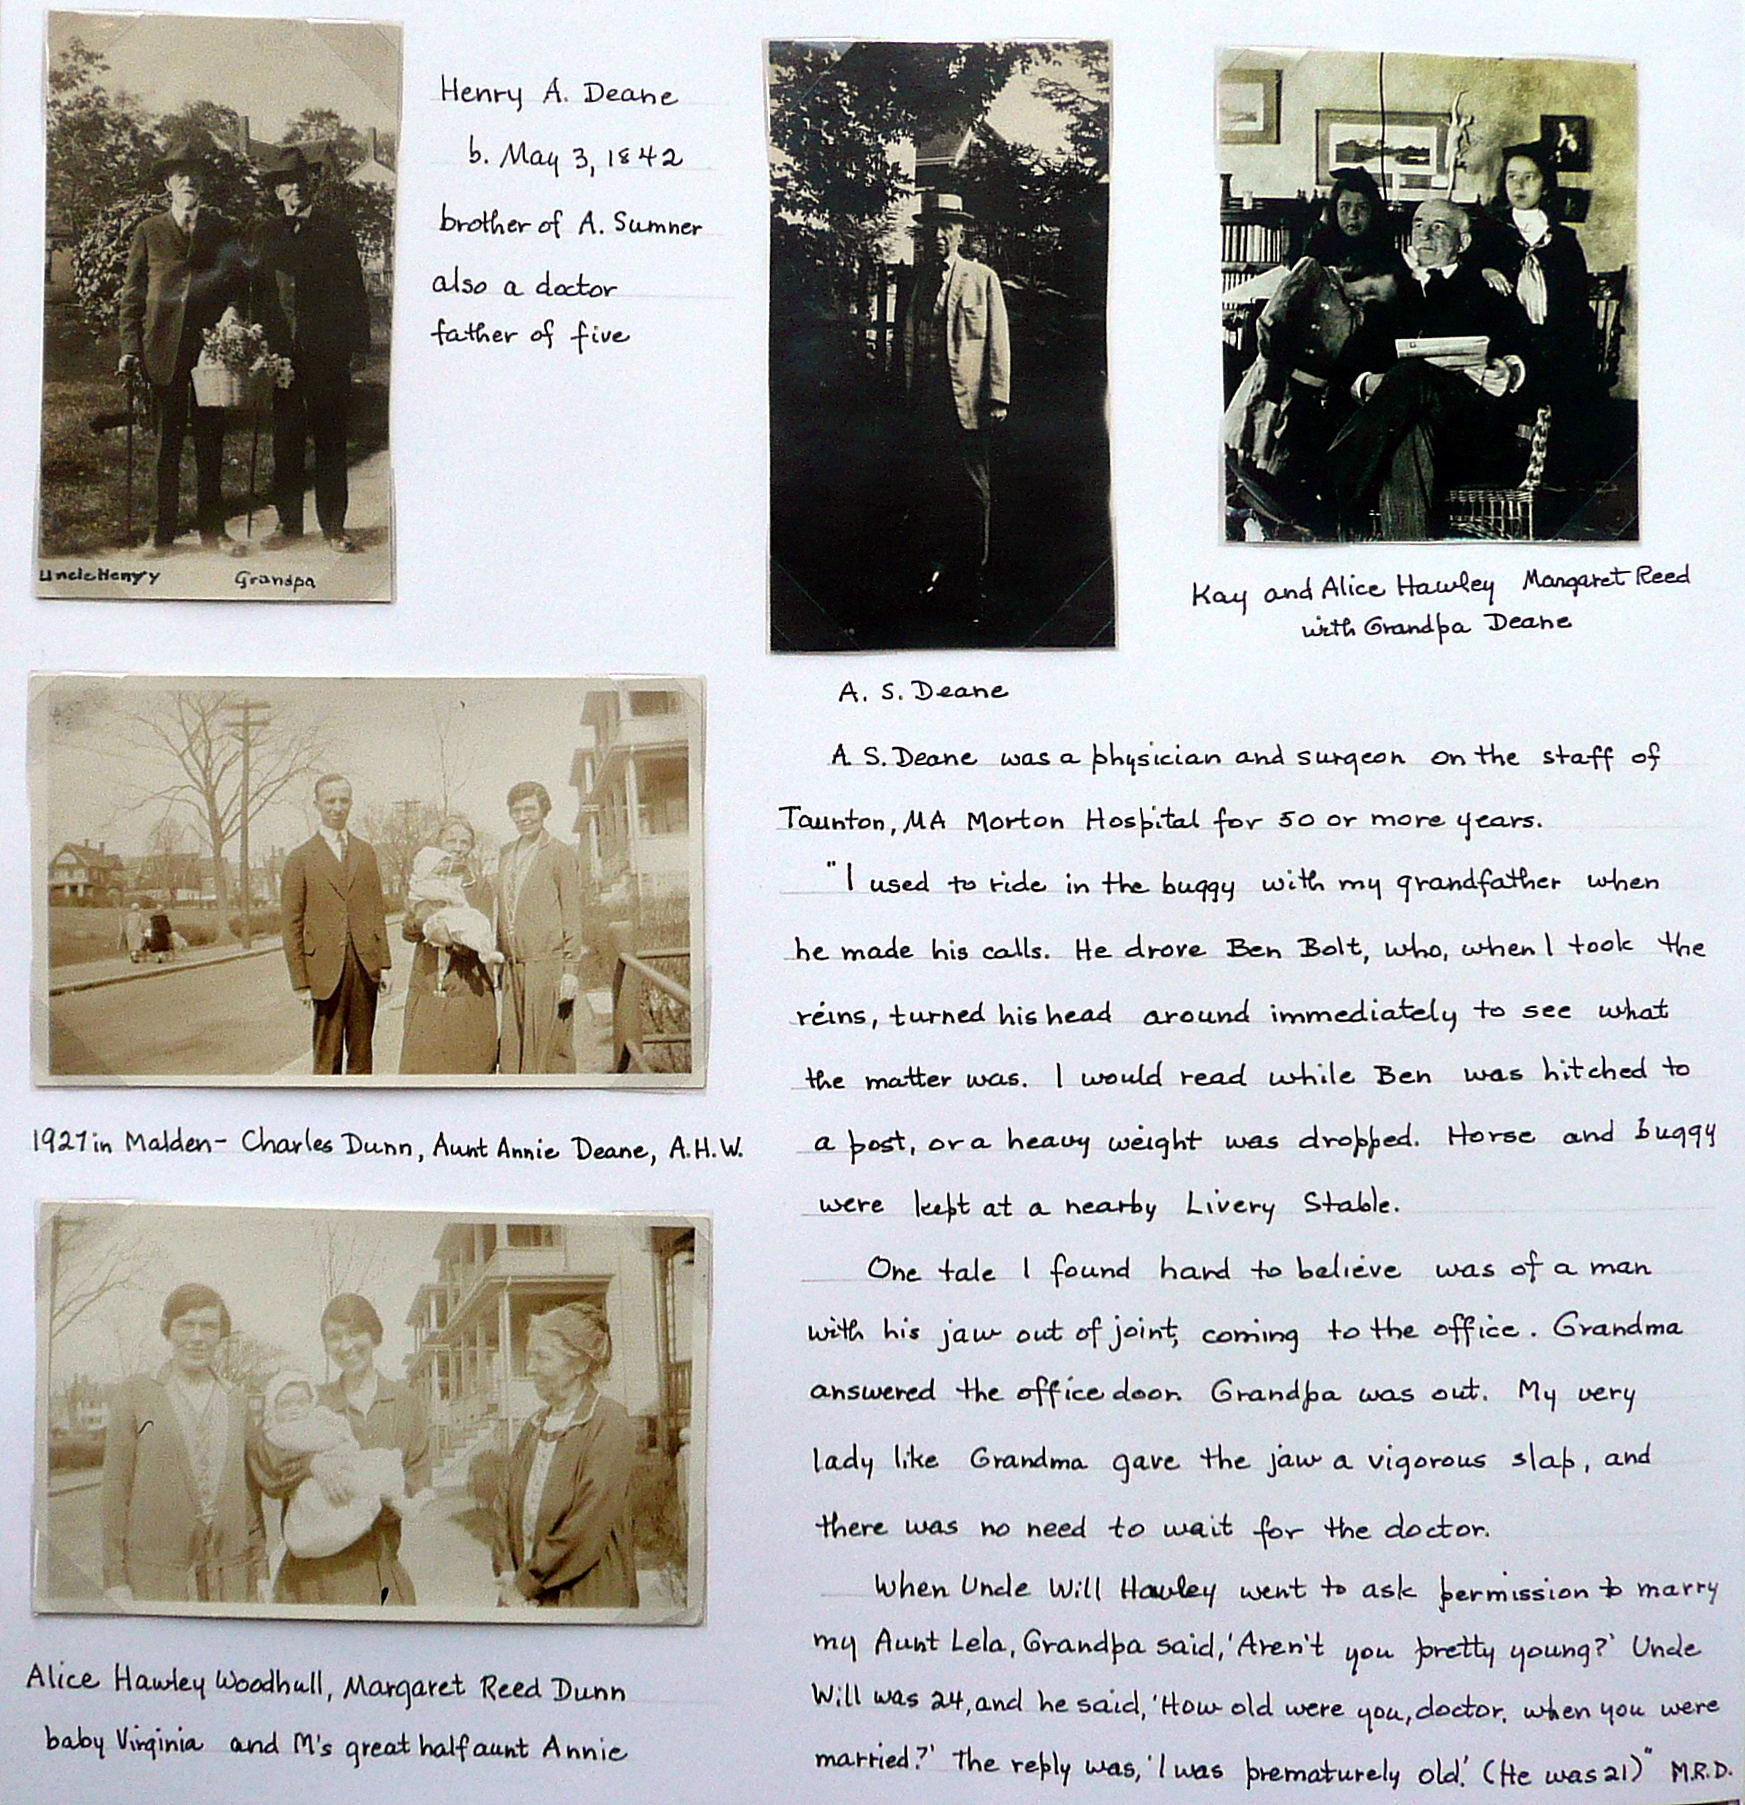 Henry A. Deane
b. May 3, 1842
brother of A. Sumner
also a doctor
father of five
Uncle Henry Grandpa
Kay and Alice Hawley Margaret Reed
with Grandpa Deane
1927 in Malden- Charles Dunn, Aunt Annie Deane, A.H.W.
Alice Hawley Woodhull, Margaret Reed Dunn
baby Virginia and M's great half aunt Annie
A. S. Deane
A. S. Deane was a physician and surgeon on the staff of
Taunton, MA Morton Hospital for 50 or more years.
"I used to ride in the buggy with my grandfather when
he made his calls. He drove Ben Bolt, who, when I took the
reins, turned his head around immediately to see what
the matter was. I would read while Ben was hitched to
a post, or a heavy weight was dropped. Horse and buggy
were kept at a nearby Livery Stable.
One tale I found hard to believe was of a man
with his jaw out of joint, coming to the office. Grandma
answered the office door. Grandpa was out. My very
lady like Grandma gave the jaw a vigorous slap, and
there was no need to wait for the doctor.
When Uncle Will Hawley went to ask permission to marry
my Aunt Lela, Grandpa said, 'Aren't you pretty young?' Uncle
Will was 24, and he said, 'How old were you, doctor, when you were
married?' The reply was, 'I was prematurely old.' (He was 21)" M.R.D.